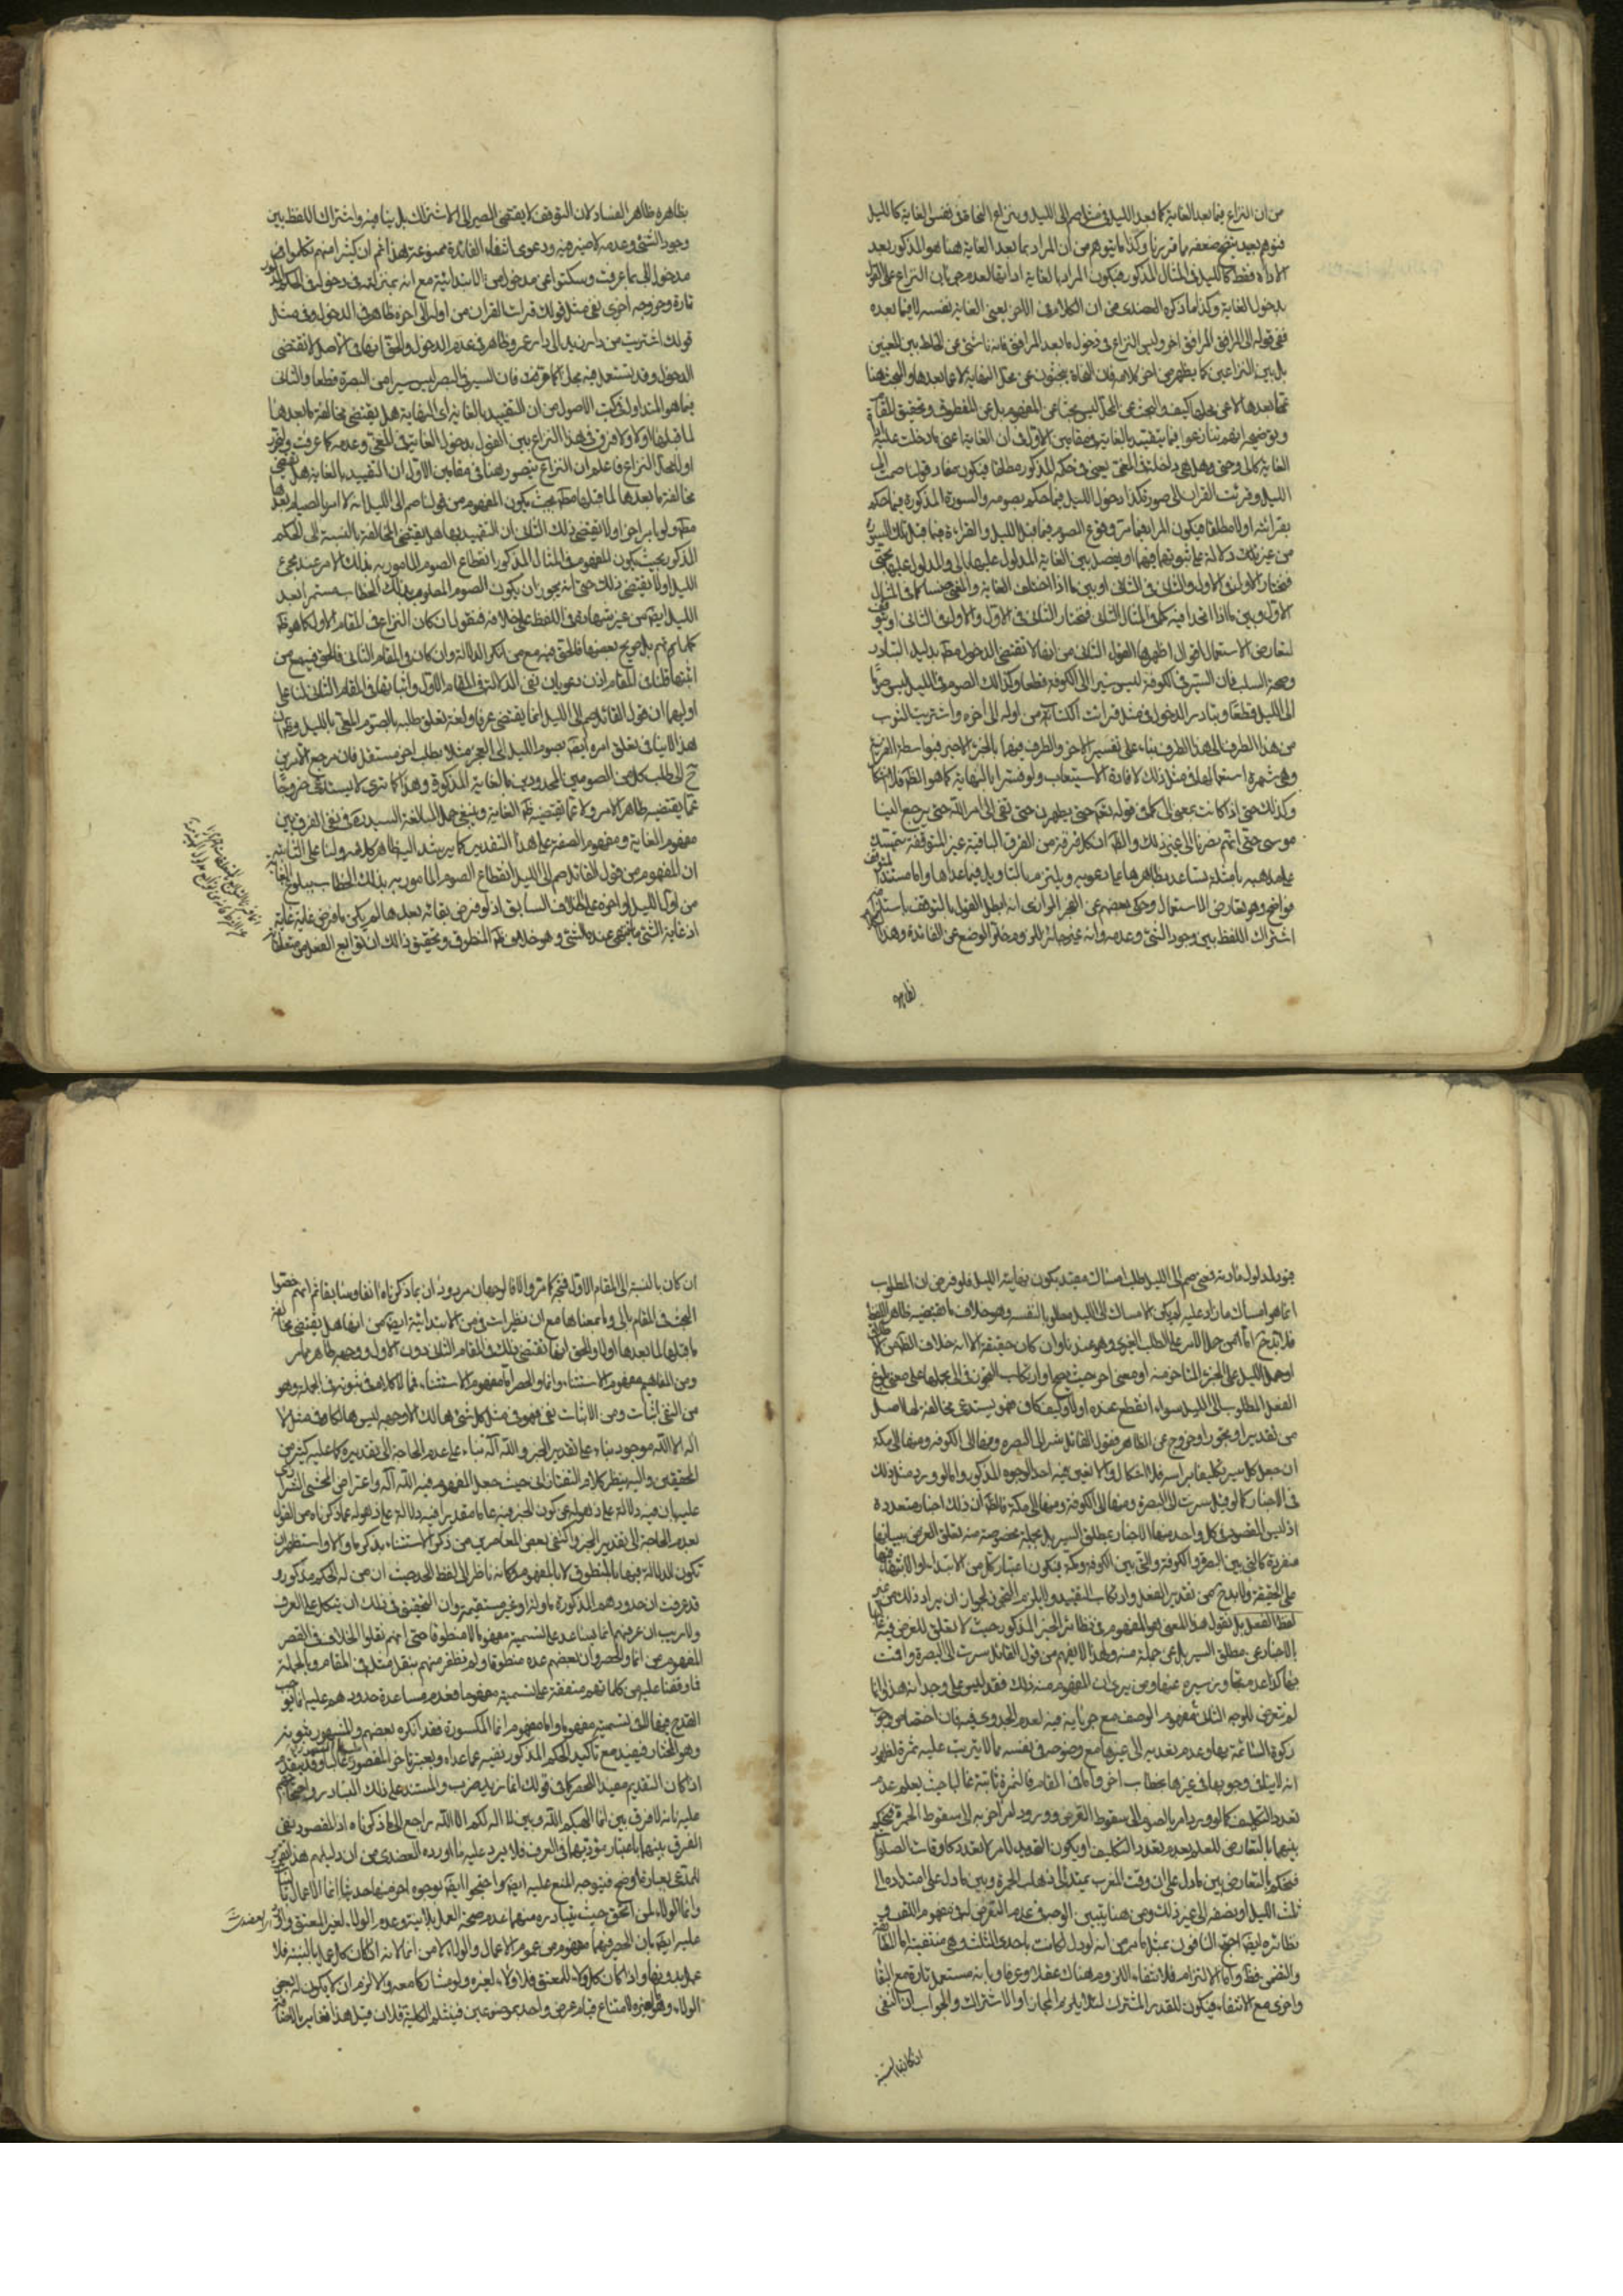 من ان النزاع فيما بعد الغاية كما بعد الليل في مثل صم الى الليل ونزاع النحاة في نفس الغاية كالليل
فتوهم بعيد يتضح ضعفه مما قررنا وكذا ما يتوهم من ان المراد بما بعد الغاية هنا هو المذكور بعد
الاداة فقط كالليل في المثال المذكور فيكون المراد بالغاية اداتها لعدم جريان النزاع على القول
بدخول الغاية وكذا ما ذكره العضدي من ان الكلام في الاخر يعني الغاية نفسه لا فيما بعده
ففي قوله الى المرافق المرافق اخر وليس النزاع في دخول ما بعد المرافق فانه ناشئ من الخلط بين المعنيين
بل بين النزاعين كما يظهر من اخر كلامه فان النحاة يبحثون عن محل النهاية لا عما بعدها والبحث هنا
عما بعدها لا عن محلها كيف والبحث عن المحل ليس بحثا عن المفهوم بل عن المنطوق وتحقيق المقام
وتوضيحه انهم تنازعوا فيما يتقيد بالغاية في مقامين الاول في ان الغاية اعني ما دخلت عليه اداة
الغاية كالى وحتى وهل هي داخلة في المغيى يعني في حكمه المذكور مطلقا فيكون مفاد قولنا صمت الى
الليل وقرئت القران الى صورة كذا دخول الليل فيما حكم بصومه والسورة المذكورة فيما حكم
بقرائته اولا مطلقا فيكون المراد فيما مر وقوع الصوم فيما قبل الليل والقراءة فيما قبل تلك السورة
من غير تلك دلالة على ثبوتهما فيهما او يفصل بين الغاية المدلول عليها بالى والمدلول عليها بحتى
فيختار الاول في الاول والثاني في الثاني او بين ما اذا اختلف الغاية والمغيى جنسا كما في المثال
الاول وبين ما اذا اتحدا فيه كما في المثال الثاني فيختار الثاني في الاول والاول في الثاني او يتوقف
لتعارض الاستعمال اقوال اظهرها القول الثاني من انها لا تقتضي الدخول مط بدليل التبادر
وصحة السلب فان السير في الكوفة ليس سيرا الى الكوفة قطعا وكذلك الصوم في الليل ليس صوما
الى الليل قطعا وتبادر الدخول في مثل قرات الكتاب من اوله الى اخره واشتريت الثوب
من هذا الطرف الى هذا الطرف بناء على تفسير الاخر والطرف فيهما بالجزء الاخير فبواسطة القرينة
وهي شهرة استعمالها في مثل ذلك لافادة الاستيعاب ولو فسرا بالنهاية كما هو الظ فلا اشكال
وكذلك حتى اذا كانت بمعنى الى كما في قوله تعم حتى يطهرن حتى تفئ الى امر الله حتى يرجع الينا
موسى حتى اتهم نصرنا الى غير ذلك والظ ان كل فرقة من الفرق الباقية غير المتوقفة تتمسك
على مذهبه بامثلة تساعد بظاهرها على دعويه ويلتزم بالتاويل فيما عداها واما مستند المتوقف
فواضح وهو تعارض الاستعمال وحكى بعضهم عن الفخر الرازي انه ابطل القول بالتوقف باستلزامه
اشتراك اللفظ بين وجود الشئ وعدمه وانه غير جائز للزوم خلو الوضع عن الفائدة وهذا
بظاهره
بظاهره ظاهر الفساد لان التوقف لا يقتضي المصير الى الاشتراك بل ينافيه واشتراك اللفظ بين
وجود الشئ وعدمه لا ضير فيه ودعوى انتفاء الفائدة ممنوعة هذا ثم ان كثيرا منهم تكلموا في
مدخول الى بما عرفت وسكتوا عن مدخول من الابتدائية مع انه بمنزلته في دخوله في الحكم المذكور
تارة وخروجه اخرى ففي مثل قولك قرات القران من اوله الى اخره ظاهر في الدخول وفي مثل
قولك اشتريت من دار زيد الى دار عمرو ظاهر في عدم الدخول والحق انها في الاصل لا تقتضي
الدخول وقد يستعمل فيه مجازا كما عرفت فان السير في البصرة ليس سيرا من البصرة قطعا والثاني
فيما هو المتداول في كتب الاصول من ان التقييد بالغاية اي النهاية هل يقتضي مخالفة ما بعدها
لما قبلها اولا ولا فرق في هذا النزاع بين القول بدخول الغاية في المغيى وعدمه كما عرفت ولنحرر
اولا محل النزاع فاعلم ان النزاع يتصور هنا في مقامين الاول ان التقييد بالغاية هل يقتضي
مخالفة ما بعدها لما قبلها مط بحيث يكون المفهوم من قولنا صم الى الليل انه لا امر بالصيام بعدها
مط ولو بامر اخر اولا يقتضي ذلك الثاني ان التقييد بها هل يقتضي المخالفة بالنسبة الى الحكم
المذكور بحيث يكون المفهوم في المثال المذكور انقطاع الصوم المامور به بذلك الامر عند مجئ
الليل اولا يقتضي ذلك حتى انه يجوز ان يكون الصوم المطلوب بذلك الخطاب مستمرا بعد
الليل ايض من غير شهادة في اللفظ على خلافه فنقول ان كان النزاع في المقام الاول كما هو ظ
كلماتهم بل صريح بعضها فالحق فيه مع من انكر الدلالة وان كان في المقام الثاني فالحق فيه مع من
اثبتها فلنا في المقام اذن دعويان نفي الدلالة في المقام الاول واثباتها في المقام الثاني لنا على
اوليهما ان قول القائل صم الى الليل انما يقتضي عرفا ولغة تعلق طلبه بالصوم المغيى بالليل وظ ان
هذا لا ينافي تعلق امره ايض بصوم الليل الى الفجر مثلا بطلب اخر مستقل فان مرجع الامرين
ح الى طلب كل من الصومين المحدودين بالغاية المذكورة وهذا كما ترى لا يستلزم خروجا
عما يقتضيه ظاهر الامر ولا عما يقتضيه ظ الغاية وينبغي حمل مبالغة السيد ره في نفي الفرق بين
مفهوم الغاية ومفهوم الصفة على هذا التقدير كما يرشد اليه ظاهر كلامه ولنا على الثانية
ان المفهوم من قول القائل صم الى الليل انقطاع الصوم المامور به بذلك الخطاب ببلوغ الغاية
من اول الليل او اخره على الخلاف السابق اذ لو فرض بقائه بعدها لم يكن ما فرض غاية غاية
اذ غاية الشئ ما ينتهي عنده الشئ وهو خلاف ظ المنطوق وتحقيق ذلك ان توابع الفعل من متعلقاته
قيود لمدلول مادته فمعنى صم الى الليل طلب امساك مقيد بكون نهايته الليل فلو فرض ان المطلوب
انما هو امساك ما زاد عليه لم يكن الامساك الى الليل مطلوبا لنفسه وهو خلاف ما يقتضيه ظاهر اللفظ
او حمل الليل على الجزء المتاخر منه او معنى اخر حيث يصح او ارتكاب التجوز في الى بجعلها على معنى بلوغ
الفعل المطلوب الى الليل سواء انقطع عنده اولا وكيف كان فهو يستدعي مخالفة لما لاصل
من تقدير او تجوز او خروج عن الظاهر فقول القائل سر الى البصره ومنها الى الكوفه ومنها الى مكة
ان جعل كل سير تكليفا براسه فلا اشكال والا تعين فيه احد الوجوه المذكورة واما لو ورد مثل ذلك
في الاخبار كما لو قيل سرت الى البصرة ومنها الى الكوفة ومنها الى مكة فالظ ان ذلك اخبار متعددة
اذ ليس المقصود في كل واحد منها الاخبار بمطلق السير بل بجملة مخصوصة منه تعلق الغرض ببيانها
منفردة كالتي بين البصرة والكوفة والتي بين الكوفة ومكة فيكون اعتبار كل من الابتداء والانتهاء فيها
على الحقيقة ولا يقدح من تقدير الفعل وارتكاب التقييد
لفظ الفعل بل نقول هذا المعنى هو المفهوم في نظائر الخبر المذكور حيث لا تعلق للغرض فيه
بالاخبار عن مطلق السير بل عن جملة منه ولهذا لا يفهم من قول القائل سرت الى البصرة واقمت
بها كذا عدم تجاوز سيره عنها ومن يرى ان المفهوم منه ذلك فقد ليس على وجدانه هذا وانما
لم نتعرض للوجه الثالث في مفهوم الوصف مع جريانه فيه لعدم الجدوى فيه فان اختصاص وجوب
زكوة السائمة بها وعدم تعديه الى غيرها مع وضوحه في نفسه مما لا يترتب عليه ثمرة لظهور
انه لا ينافي وجوبها في غيرها بخطاب اخر واما في المقام فالثمرة ثابتة غالبا حيث يعلم عدم
تعدد التكليف كما لو ورد امر بالصوم الى سقوط القرص وورود امر اخر به الى سقوط الحمرة فيحكم
بينهما بالتعارض للعلم بعدم تعدد التكليف
فيحكم بالتعارض بين ما دل على ان وقت المغرب يمتد الى ذهاب الحمرة وبين ما دل على امتداده الى
ثلث الليل او نصفه الى غير ذلك ومن هنا يتبين الوجه في عدم التعرض له في مفهوم اللقب و
نظائره ايضا احتج النافون بمثل ما مر من انه لو دل لكانت باحدى الثلث وهي منتفية اما المطابقة
والتضمن فظ واما الالتزام فلانتفاء اللزوم هناك عقلا وعرفا وبانه مستعمل تارة مع البقاء
واخرى مع الانتفاء فيكون للقدر المشترك لئلا يلزم المجاز او الاشتراك والجواب ان النفي
ان كان بالنسبة
ان كان بالنسبة الى المقام الاول فمتجه كما مر والا فالوجهان مردودان بما ذكرناه انفا وسابقا ثم انهم خصوا
البحث في المقام بالى وما بمعناها مع ان نظيرات في من الابتدائية ايض من انها هل يقتضي مخالفة
ما قبلها لما بعدها اولا والحق انها تقتضي ذلك في المقام الثاني دون الاول ووجهه ظاهر مما مر
ومن المفاهيم مفهوم الاستثناء وانما والحصر اما مفهوم الاستثناء فمما لا كلام في ثبوته في الجملة وهو
من النفي اثبات ومن الاثبات نفي فهو في مثل كل شئ هالك الا وجهه ليس هالكا وفي مثل لا
اله الا الله موجود بناء على تقدير الخبر والله اله بناء على عدم الحاجة الى تقديره كما عليه كثير من
المحققين واليه ينظر كلام التفتازاني حيث جعل المفهوم فيه الله اله واعتراض المحشي الشيرازي
عليه بان فيه دلالة على ذهوله عن كون الخبر فيه عاما مقدرا فيه دلالة على ذهوله عما ذكرناه من القول
بعدم الحاجة الى تقدير الخبر واكتفى بعض المعاصرين من ذكر الاستثناء بذكر ما والا واستظهر ان
تكون الدلالة فيها بالمنطوق لا بالمفهوم وكانه ناظر الى لفظ الحد حيث ان من له الحكم مذكور و
قد عرفت ان حدودهم المذكورة ماولة او غير مستقيمة وان التحقيق في ذلك ان يتكل على العرف
ولا ريب ان عرفهم انما يساعد على تسميته مفهوما لا منطوقا حتى انهم نقلوا الخلاف في القصر
المفهوم من انما والحصر وان بعضهم عده منطوقا ولم نظفر منهم بنقل مثله في المقام وبالجملة
فما وقفنا عليه من كلماتهم متفقة على تسميته مفهوما فعدم مساعدة حدودهم عليه انما يوجب
القدح فيها لا في تسميته مفهوما واما مفهوم انما المكسورة فقد انكره بعضهم والمشهور ثبوته
وهو المختار فيفيد مع تاكيد الحكم المذكور نفيه عما عداه ويعتبر تاخر المقصور عليه غالبا وقد يتقدم
اذا كان التقديم مفيدا للحصر كما في قولك انما زيدا ضربت والمستند على ذلك التبادر واحتجاجهم
عليه بانه لا فرق بين انما الهكم الله وبين لا اله لكم الا الله راجع الى ما ذكرناه اذ المقصود نفي
الفرق بينهما باعتبار مؤديهما في العرف فلا يرد عليه ما اورده العضدي من ان دليلهم هذا تقرير
للمدعى بعبارة اوضح فيتوجه المنع عليه ايض واحتجوا ايض بوجوه اخر منها حديث انما الاعمال بالنيات
وانما الولاء لمن اعتق حيث يتبادر منهما عدم صحة العمل بلا نية وعدم الولاء لغير المعتق واورد العضدي
عليه ايض بان الحصر فيهما مفهوم من عموم الاعمال والولاء لا من انما لانه اذا كان كل عمل بالنية فلا
عمل بدونها واذا كان كل ولاء للمعتق فلا ولاء لغيره ولو مشاركا معه والا لزم ان لا يكون له بعض
الولاء وهو لغيره لامتناع قيام عرض واحد بموضوعين فينثلم الكلية فلان قيل هذا تغاير بالاضافة